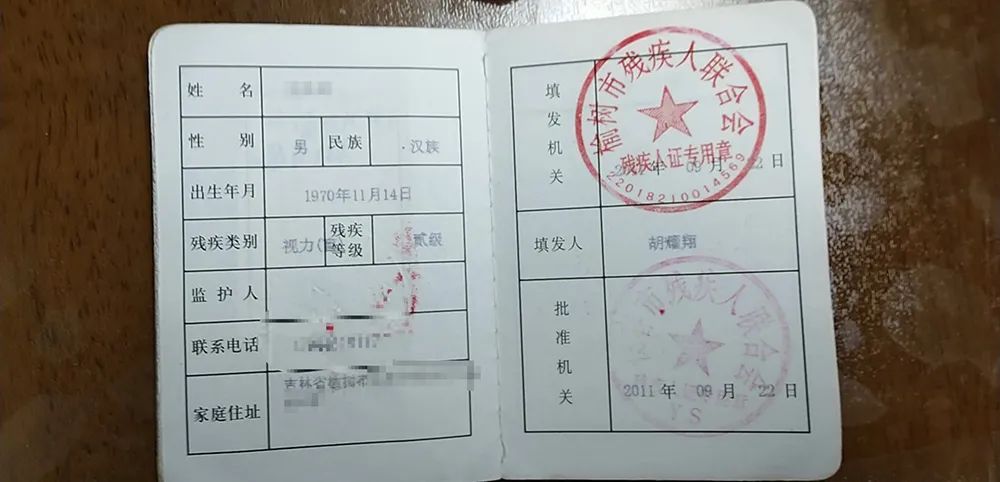 姓名
性别 男 民族 汉族
出生年月 1970年11月14日
残疾类别 视力 残疾等级 贰级
监护人
联系电话
家庭住址 吉林省榆树市
填发机关
榆树市残疾人联合会
残疾人证专用章
22018210014569
年 09 月 22 日
填发人 胡耀翔
批准机关
市残疾人联合会
2011年 09 月 22 日